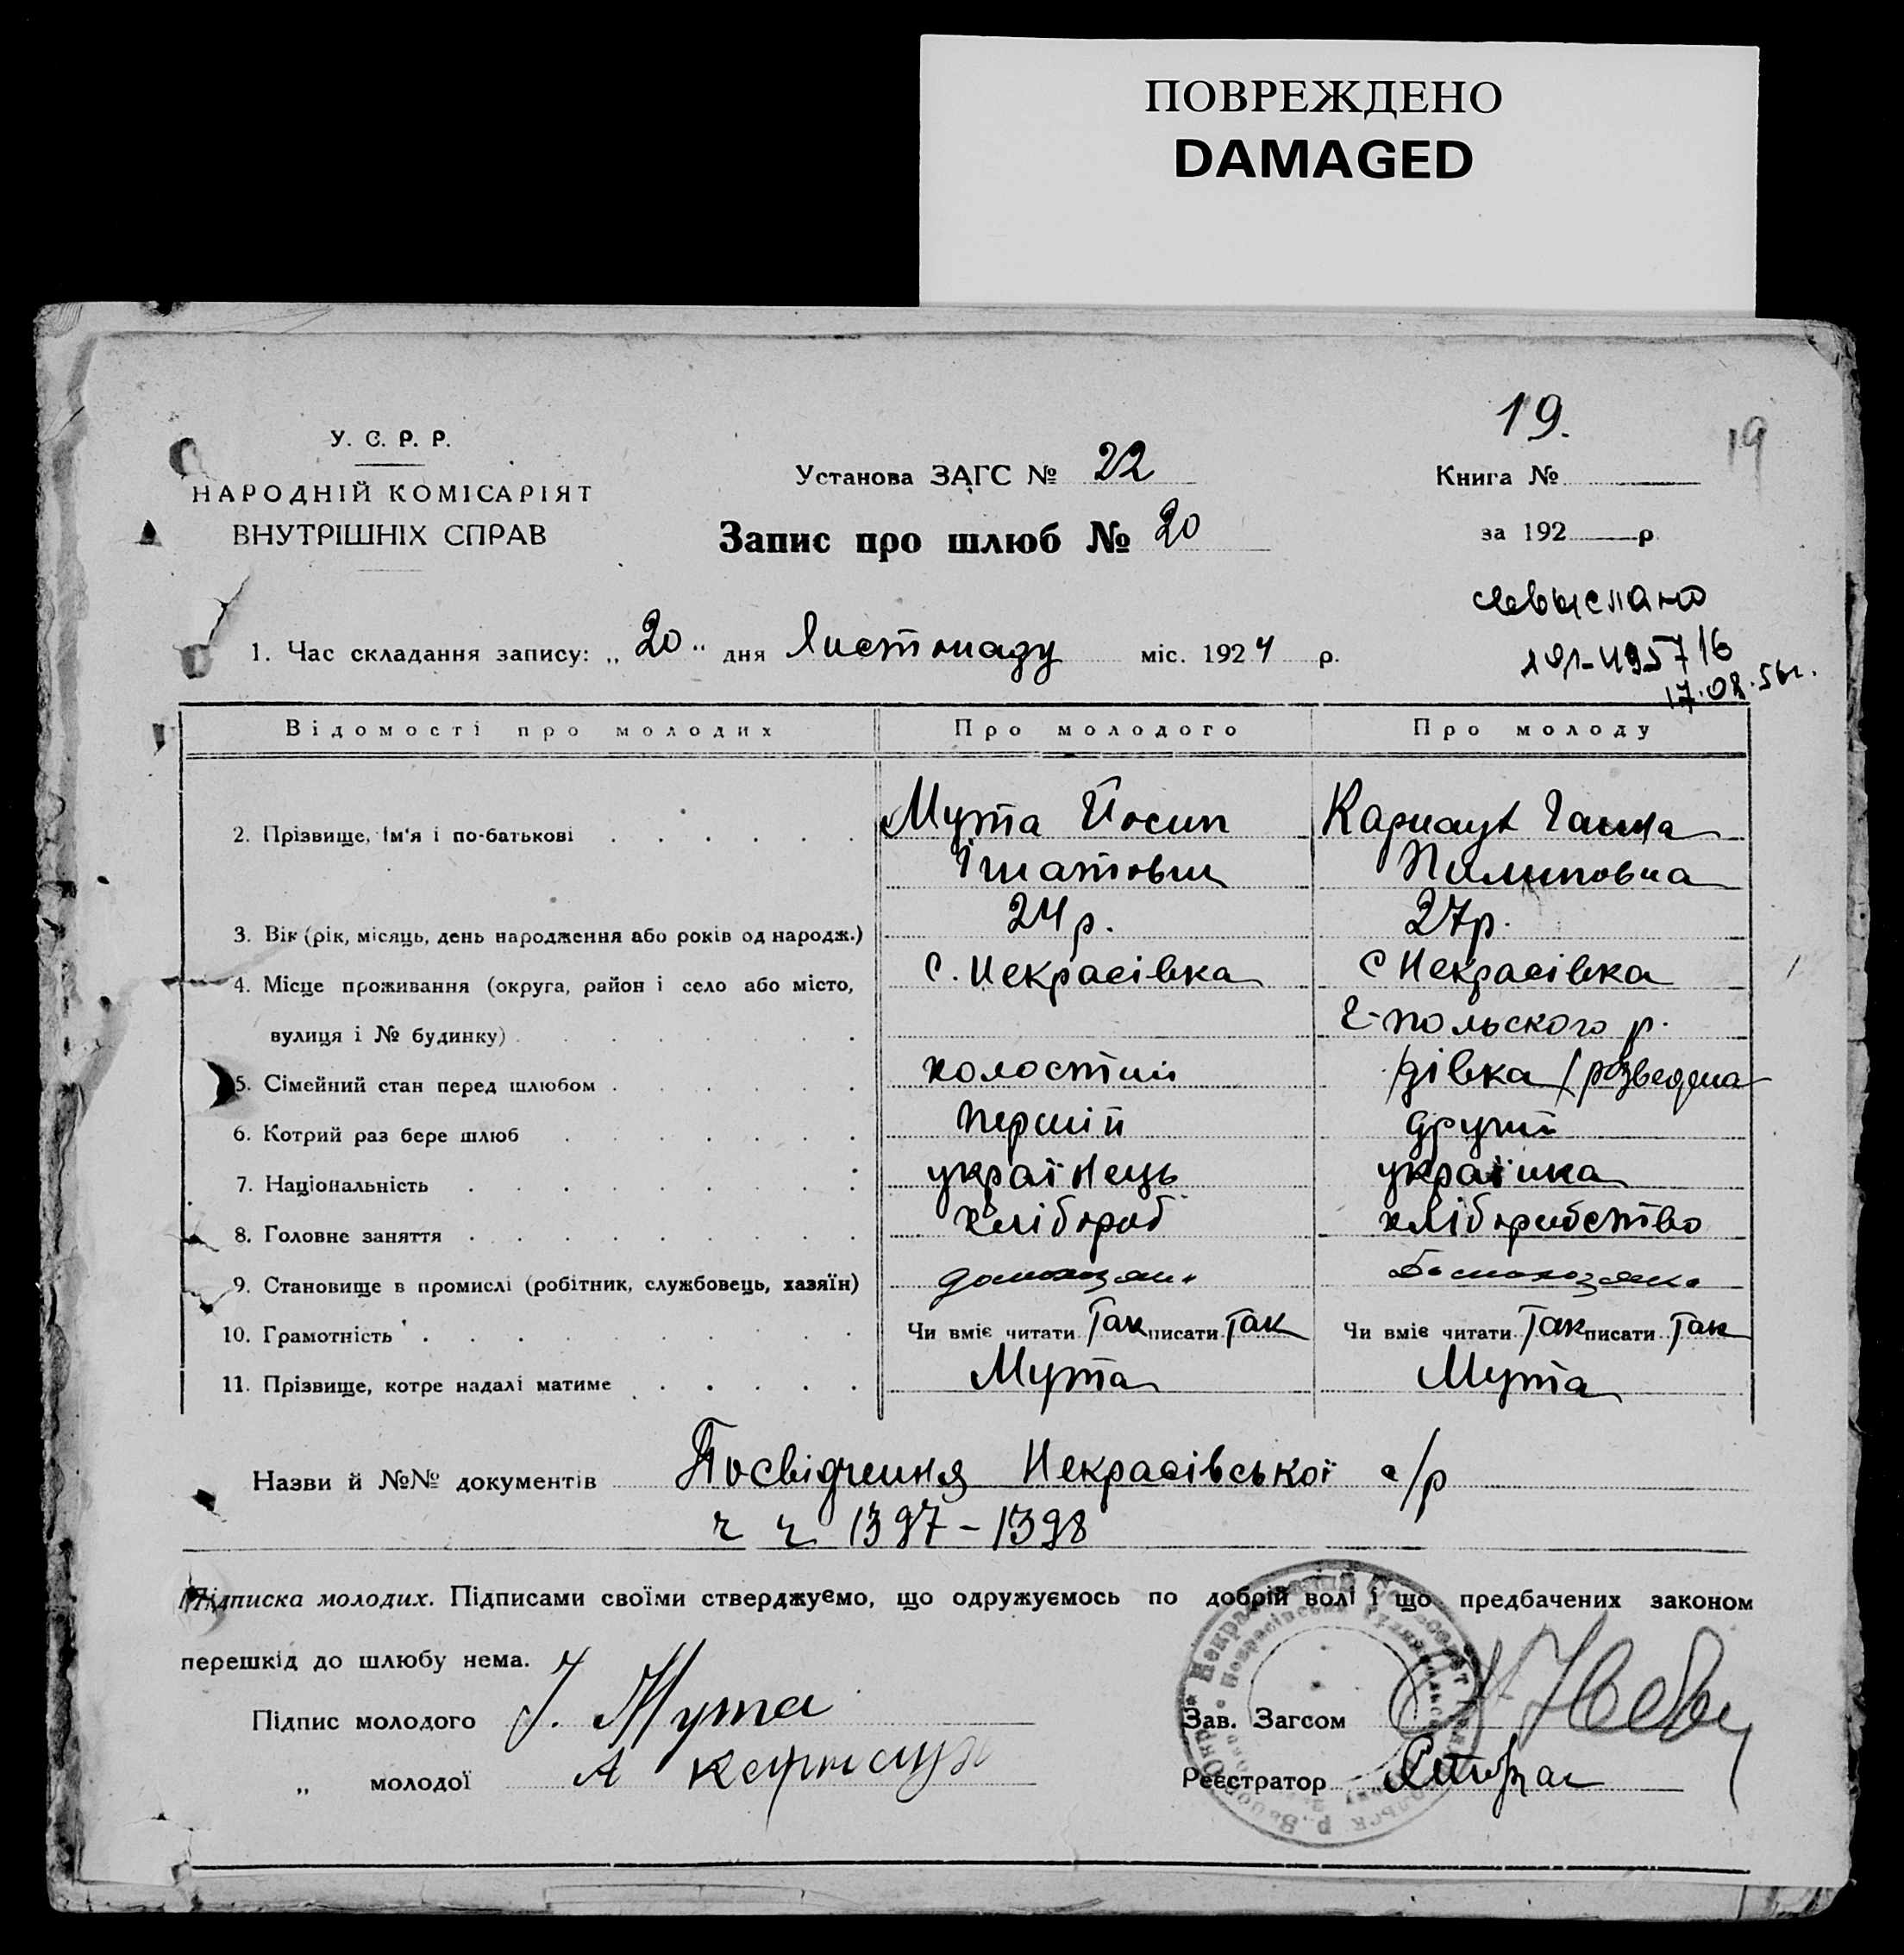 ПОВРЕЖДЕНО
DAMAGED
19.
19
У. С. Р. Р.
НАРОДНІЙ КОМІСАРІЯТ
ВНУТРІШНІХ СПРАВ
Установа ЗАГС № 22
Запис про шлюб № 20
Книга №
за 192 р
1. Час складання запису: „ 20 “ дня Листопаду міс. 1924 р.
17.08.56г.
Відомості про молодих Про молодого Про молоду
2. Прізвище, ім'я і по-батькові Мута Йосип Ганна
Ігнатович Пилиповна
3. Вік (рік, місяць, день народження або років од народж.) 24 р. 27 р.
4. Місце проживання (округа, район і село або місто, с. Некрасівка с Некрасівка
вулиця і № будинку) Г-польского р.
5. Сімейний стан перед шлюбом холостий дівка / розведена
6. Котрий раз бере шлюб перший другий
7. Національність українець українка
8. Головне заняття хлібороб хліборобство
9. Становище в промислі (робітник, службовець, хазяїн)
10. Грамотність Чи вміє читати Так писати Так Чи вміє читати Так писати Так
11. Прізвище, котре надалі матиме Мута Мута
Назви й №№ документів Посвідчення Некрасівської с/р
ч ч 1397-1398
Підписка молодих. Підписами своїми стверджуємо, що одружуємось по добрій волі і що предбачених законом
перешкід до шлюбу нема.
Підпис молодого Й. Мута
Зав. Загсом
„ молодої А
Реєстратор